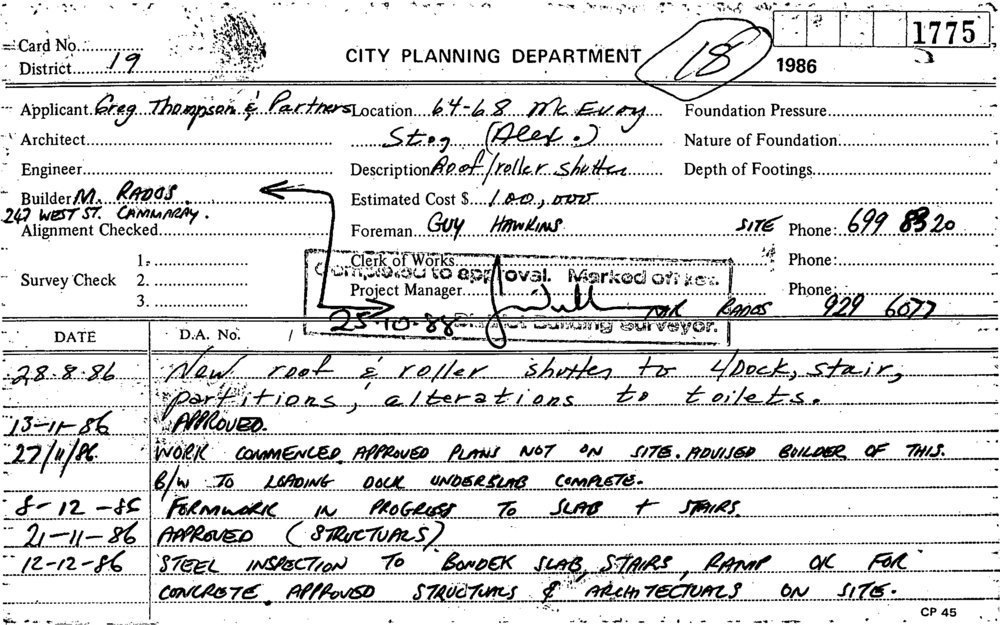 Card No.
District 19
CITY PLANNING DEPARTMENT
18
1775
1986
Applicant Greg Thompson & Partners Location 64-68 McEvoy Foundation Pressure
Architect Stog (Alex.) Nature of Foundation
Engineer Description Roof/roller shutter Depth of Footings
Builder M. RADOS Estimated Cost $ 100,000
247 WEST ST. CAMMARAY.
Alignment Checked Foreman GUY HAWKINS SITE Phone: 699 8320
1. Clerk of Works Phone:
Completed to approval. Marked off
Survey Check 2. Project Manager Phone:
3. MR RADOS 929 6077
25-10-88 Building Surveyor.
DATE D.A. No. /
28.8.86 New roof & roller shutter to 4Dock, stair,
partitions, alterations to toilets.
13-11-86 APPROVED.
27/11/86 WORK COMMENCED. APPROVED PLANS NOT ON SITE. ADVISED BUILDER OF THIS.
B/W TO LOADING DOCK UNDERSLAB COMPLETE.
8-12-86 FORMWORK IN PROGRESS TO SLAB + STAIRS.
21-11-86 APPROVED (STRUCTUALS)
12-12-86 STEEL INSPECTION TO BONDEK SLAB, STAIRS, RAMP OK FOR
CONCRETE. APPROVED STRUCTUALS & ARCHITECTUALS ON SITE.
CP 45